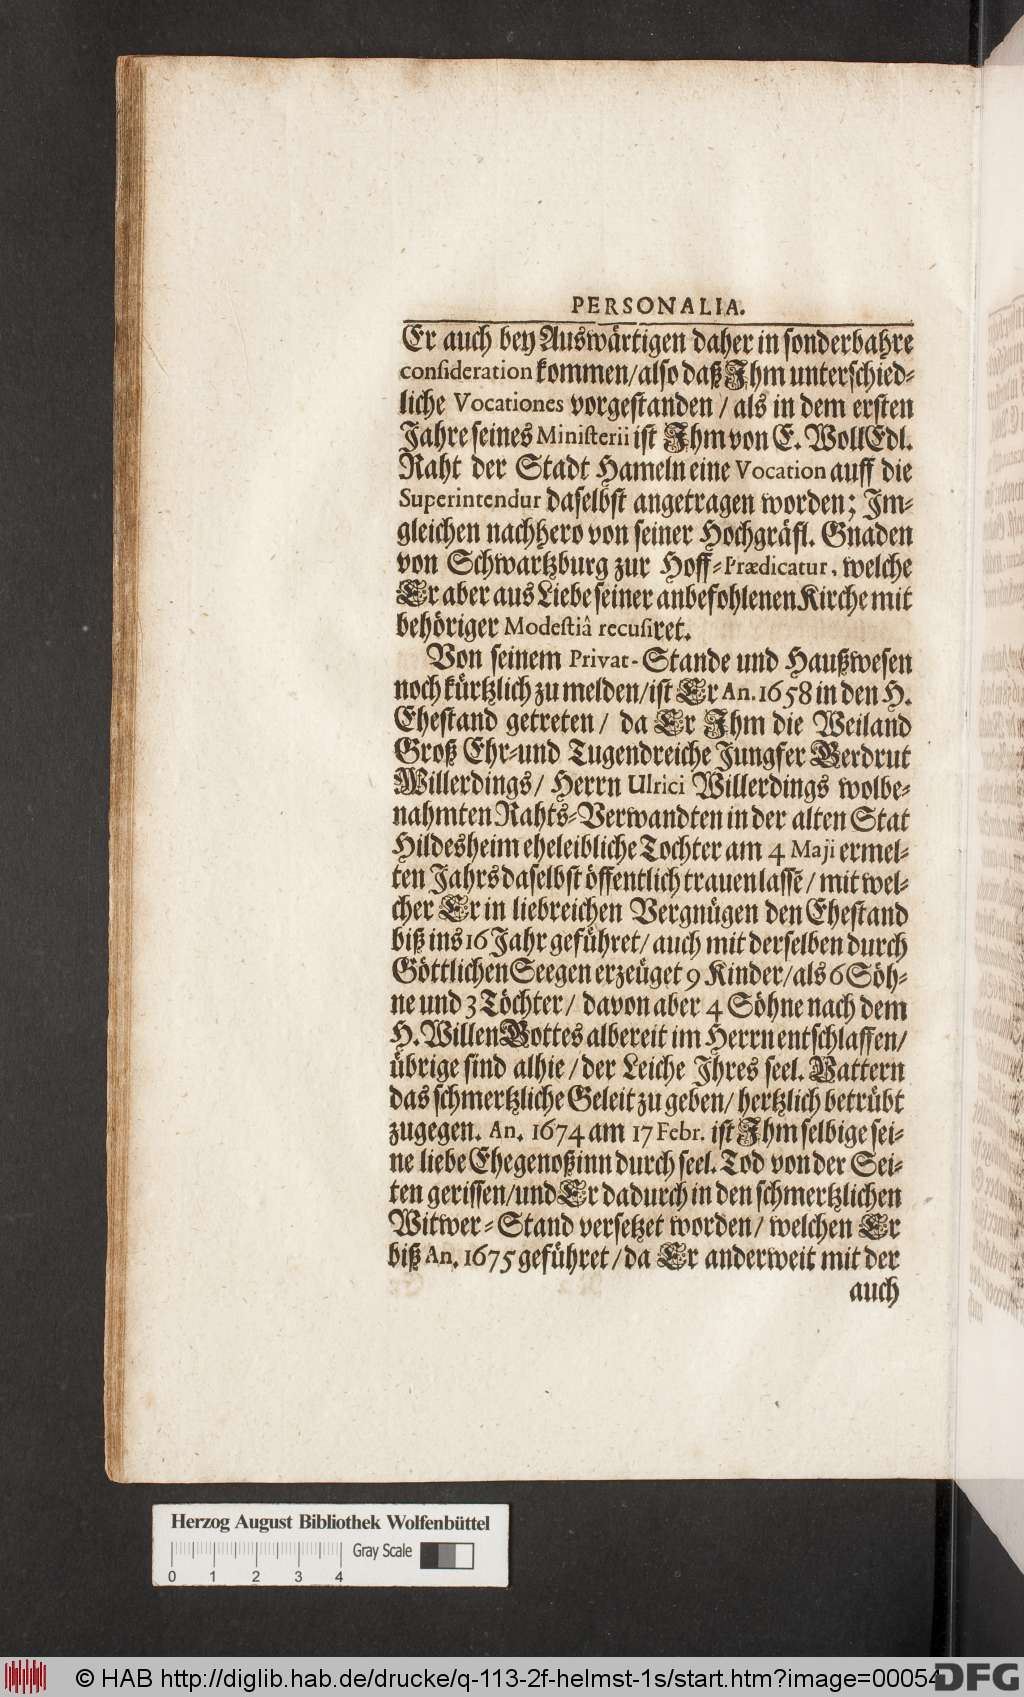 PERSONALIA.
Er auch bey Auswärtigen daher in sonderbahre
consideration kommen/also daß Ihm unterschied-
liche Vocationes vorgestanden / als in dem ersten
Jahre seines Ministerii ist Ihm von E. WollEdl.
Raht der Stadt Hameln eine Vocation auff die
Superintendur daselbst angetragen worden; Im-
gleichen nachhero von seiner Hochgräfl. Gnaden
von Schwartzburg zur Hoff-Prædicatur, welche
Er aber aus Liebe seiner anbefohlenen Kirche mit
behöriger Modestiâ recusiret.
Von seinem Privat-Stande und Haußwesen
noch kürtzlich zu melden/ist Er An. 1658 in den H.
Ehestand getreten/ da Er Ihm die Weiland
Groß Ehr-und Tugendreiche Jungfer Gerdrut
Willerdings/ Herrn Ulrici Willerdings wolbe-
nahmten Rahts-Verwandten in der alten Stat
Hildesheim eheleibliche Tochter am 4 Maji ermel-
ten Jahrs daselbst öffentlich trauen lassẽ/ mit wel-
cher Er in liebreichen Vergnügen den Ehestand
biß ins 16 Jahr geführet/ auch mit derselben durch
Göttlichen Seegen erzeüget 9 Kinder/als 6 Söh-
ne und 3 Töchter/ davon aber 4 Söhne nach dem
H. Willen Gottes albereit im Herrn entschlaffen/
übrige sind alhie/der Leiche Ihres seel. Vattern
das schmertzliche Geleit zu geben/ hertzlich betrübt
zugegen. An. 1674 am 17 Febr. ist Ihm selbige sei-
ne liebe Ehegenoßinn durch seel. Tod von der Sei-
ten gerissen/und Er dadurch in den schmertzlichen
Witwer-Stand versetzet worden/ welchen Er
biß An. 1675 geführet/da Er anderweit mit der
auch
Herzog August Bibliothek Wolfenbüttel
Gray Scale
0 1 2 3 4
© HAB http://diglib.hab.de/drucke/q-113-2f-helmst-1s/start.htm?image=00054
DFG